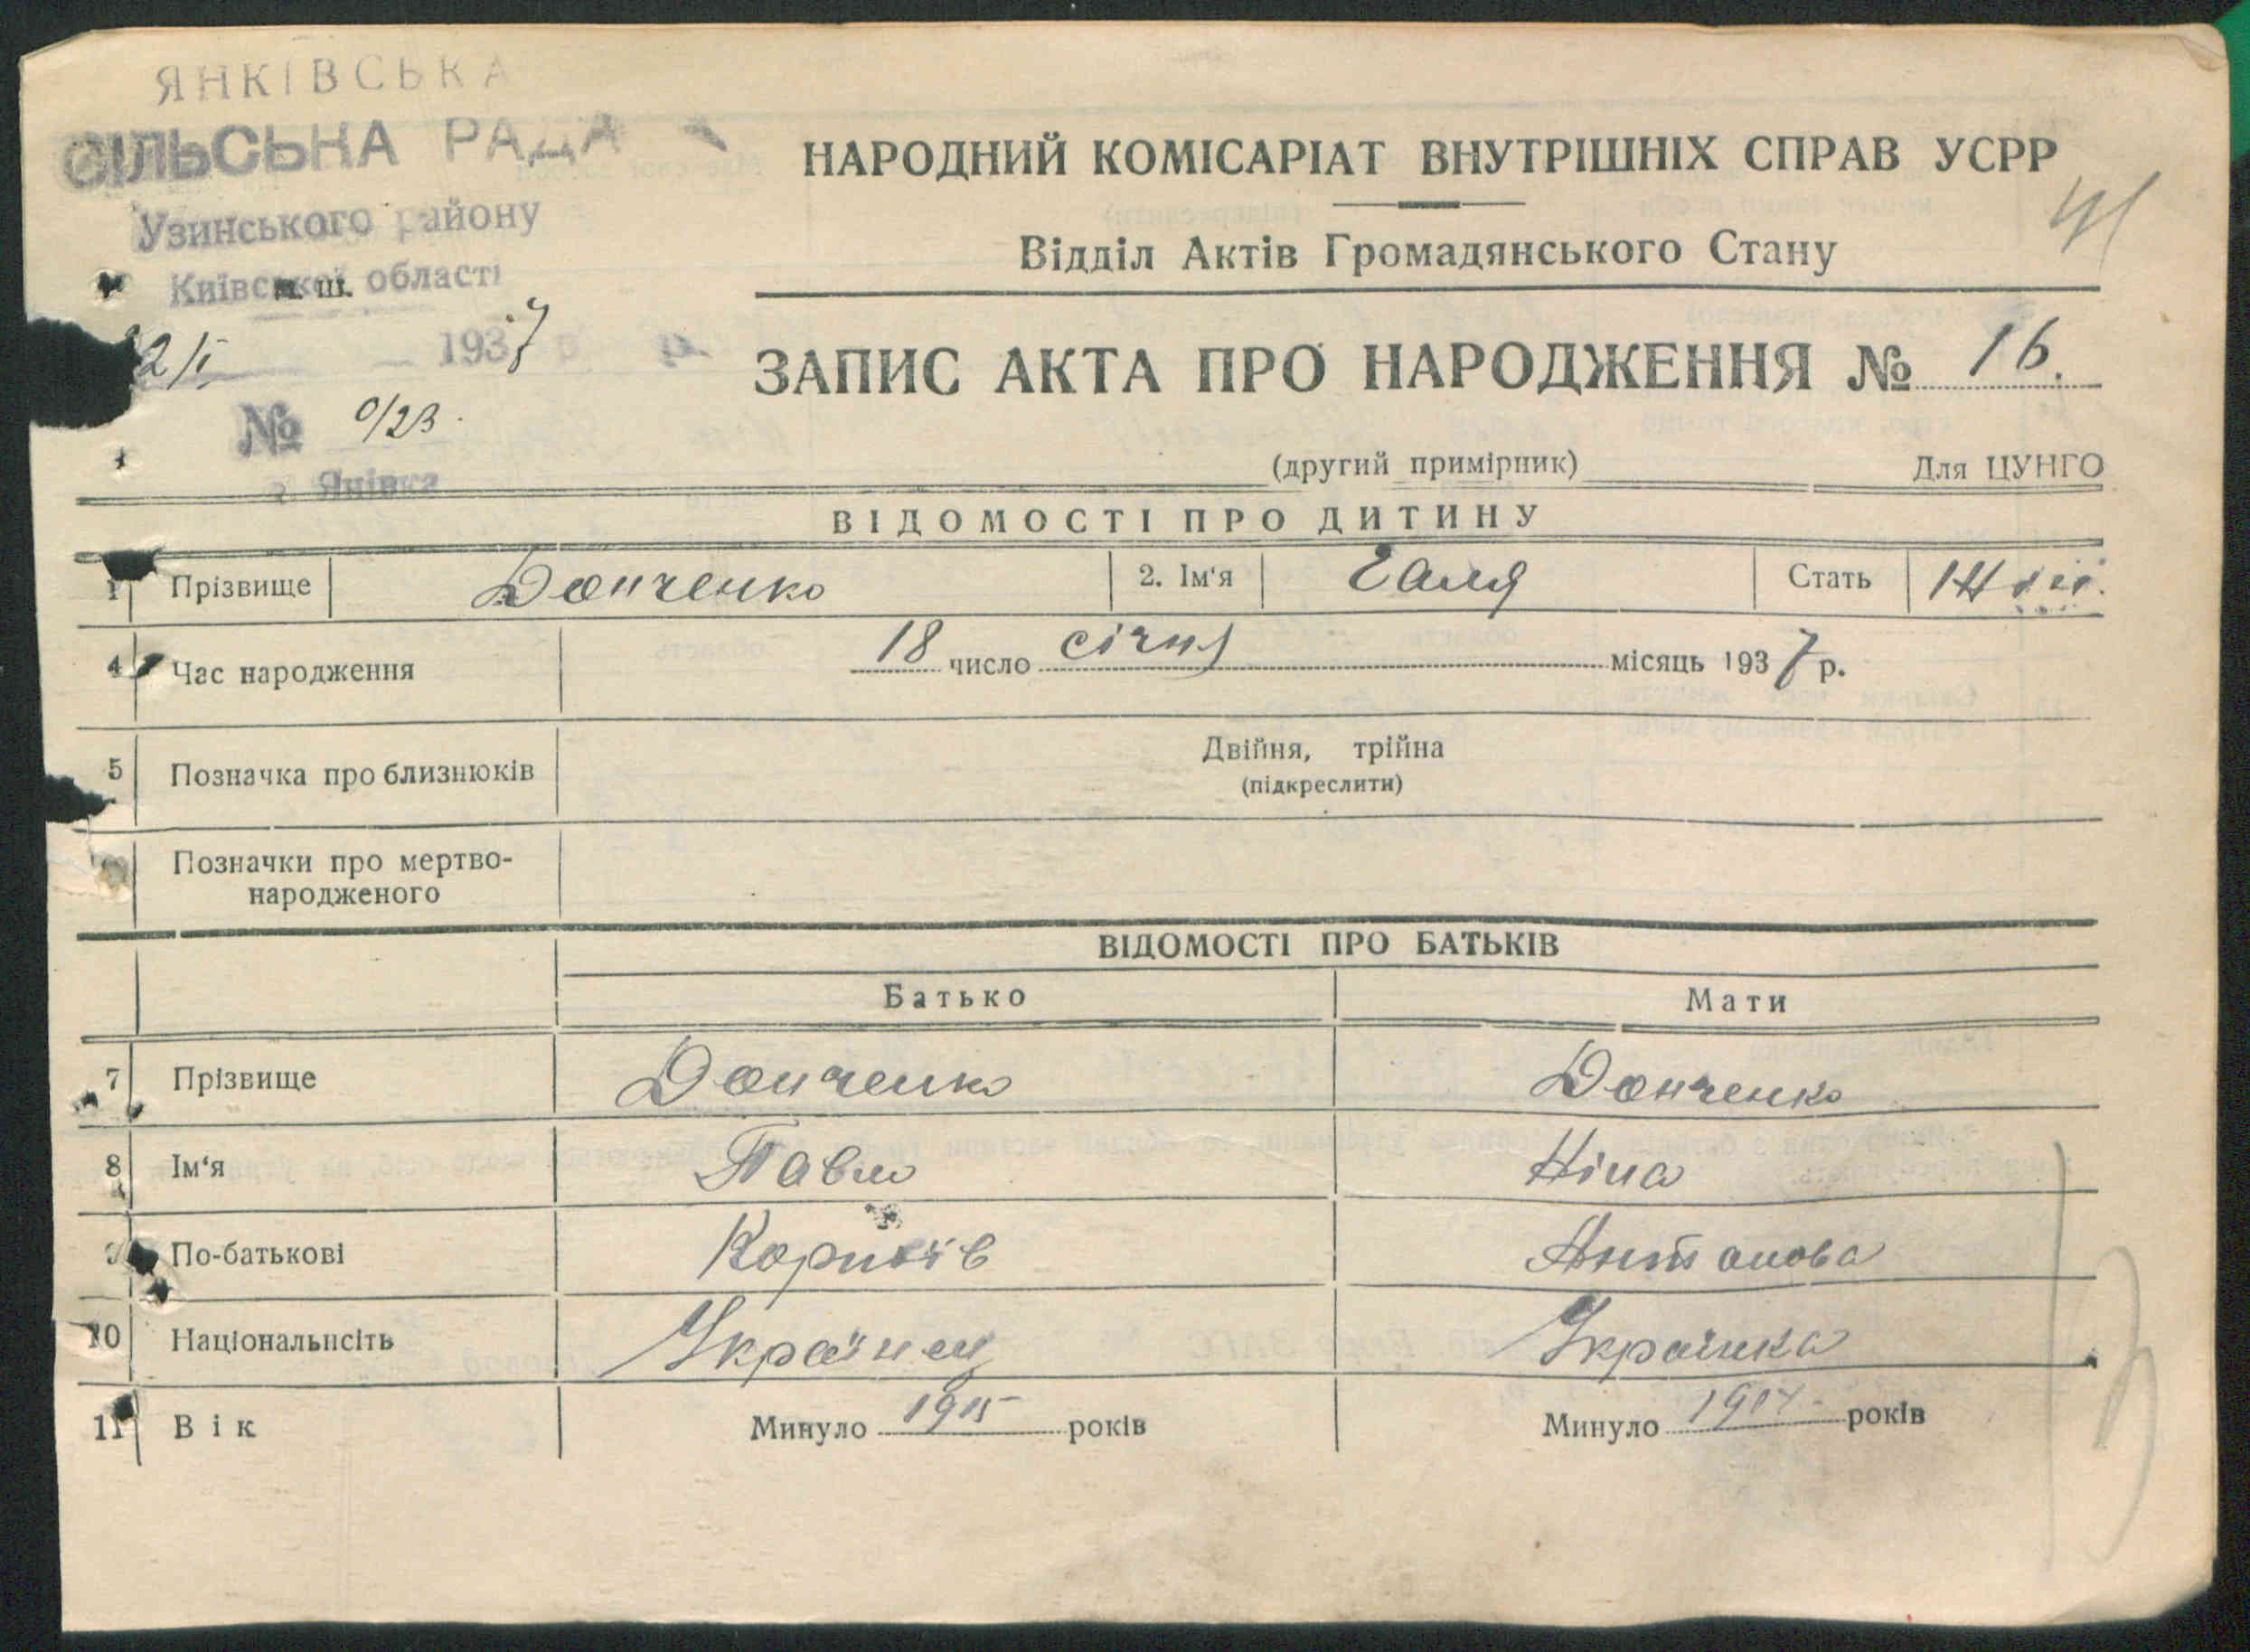 ЯНКІВСЬКА
СІЛЬСЬКА РАДА
Узинського району
Київської області
м. ш.
2/I 1937 р.
№ 0/23.
Янівка
41
НАРОДНИЙ КОМІСАРІАТ ВНУТРІШНІХ СПРАВ УСРР
Відділ Актів Громадянського Стану
ЗАПИС АКТА ПРО НАРОДЖЕННЯ № 16.
(другий примірник) Для ЦУНГО
ВІДОМОСТІ ПРО ДИТИНУ
1 Прізвище Донченко 2. Ім‘я Галя Стать
4 Час народження 18 число січня місяць 1937 р.
5 Позначка про близнюків Двійня, трійна
(підкреслити)
Позначки про мертво-
народженого
ВІДОМОСТІ ПРО БАТЬКІВ
Батько Мати
7 Прізвище Донченко Донченко
8 Ім‘я Павло Ніна
9 По-батькові Корніїв Антонова
10 Національність Українец Українка
11 Вік Минуло 1915 років Минуло 1914 років